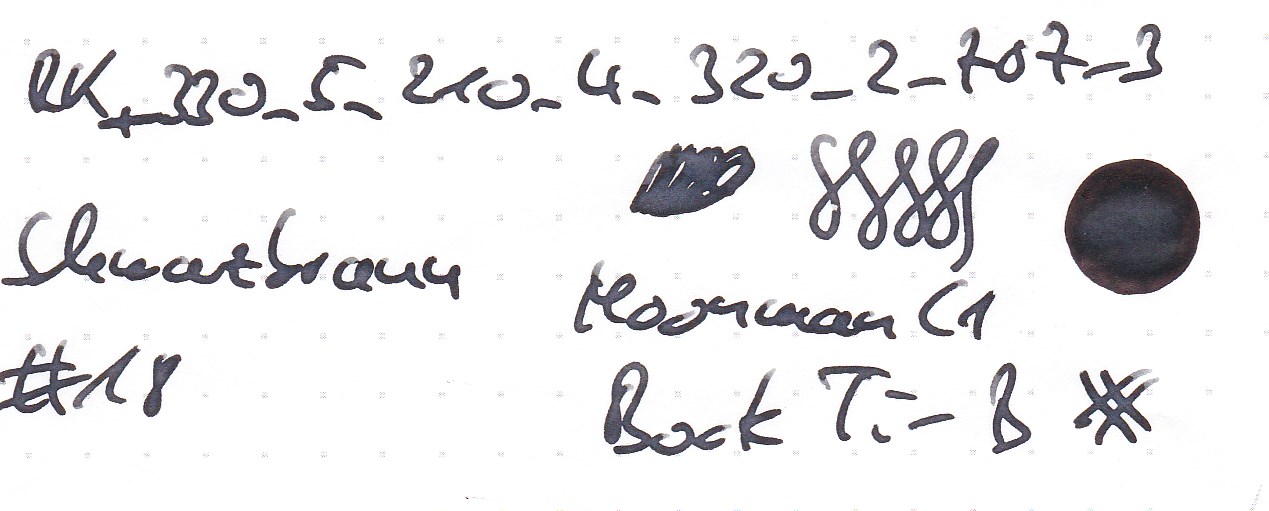 RK_330_5_210_4_320_2_707_3
Schwarzbraun
Moonman C1
#18
Bock Ti-B